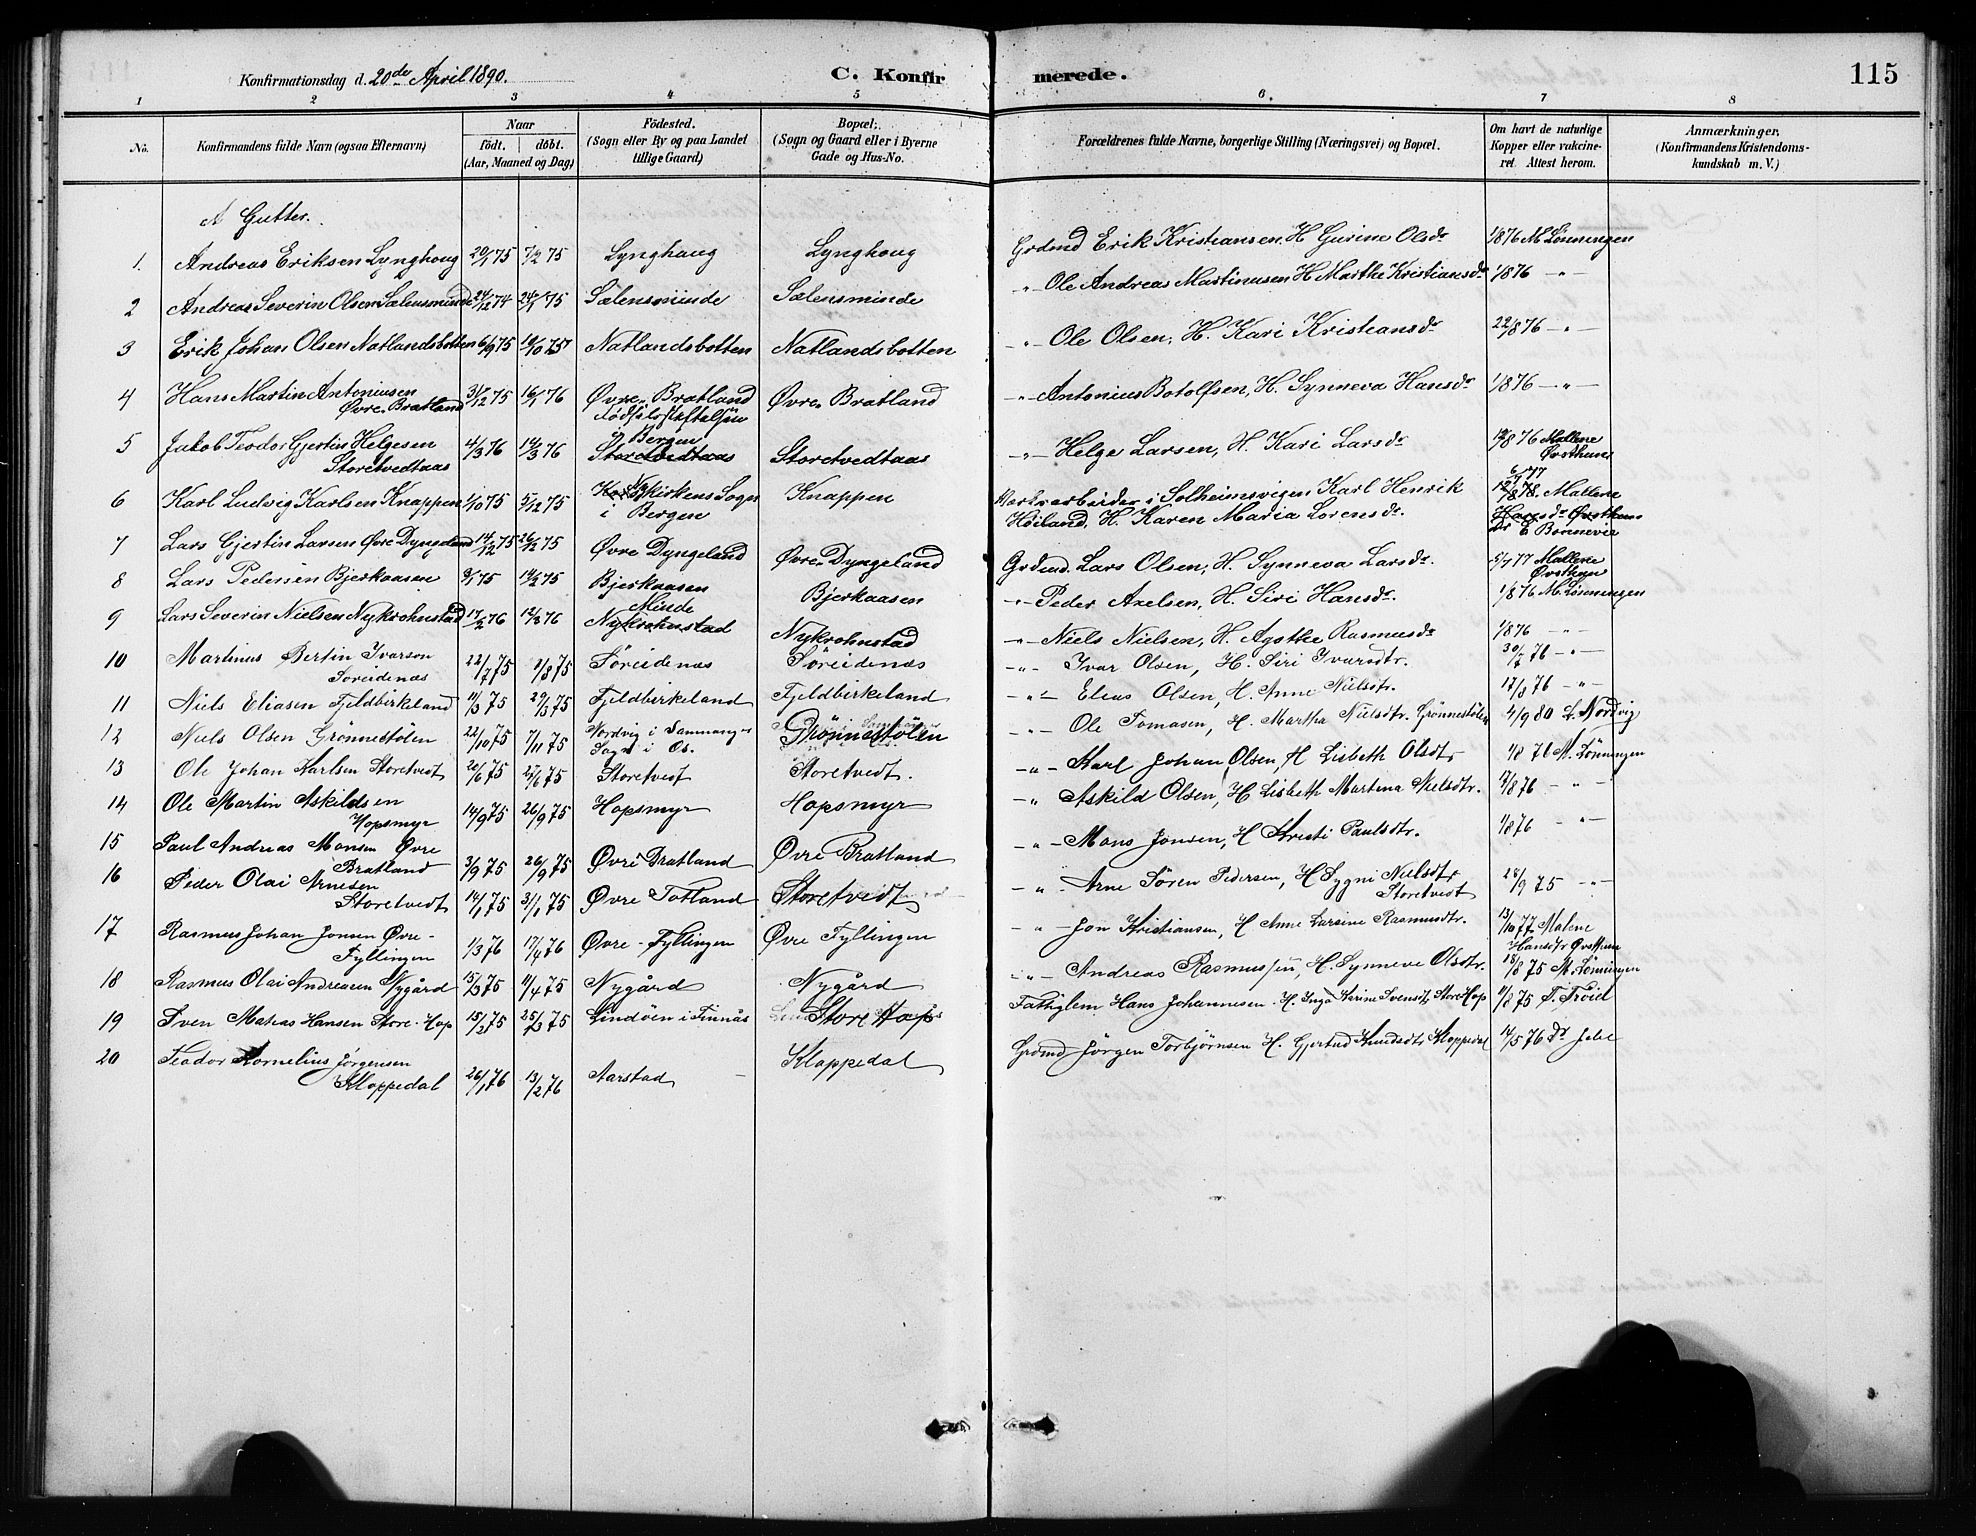 Konfirmationsdag d. 20de April 1890.
C. Konfirmerede.
115
1 2 3 4 5 6. 7 8
No.
Konfirmandens fulde Navn (ogsaa Efternavn)
Naar
født. døbt.
(Aar, Maaned og Dag)
Fødested.
(Sogn eller By og paa Landet
tillige Gaard)
Bopæl.
(Sogn og Gaard eller i Byerne
Gade og Hus-No.
Forældrenes fulde Navne, borgerlige Stilling (Næringsvei) og Bopæl.
Om havt de naturlige
Kopper eller vakcine-
ret. Attest herom.
Anmærkninger.
(Konfirmandens Kristendoms-
kundskab m. V.)
A Gutter.
1. Andreas Eriksen Lynghoug 20/1 75 7/2 75 Lynghaug Lynghoug Grdmd Erik Kristiansen, H. Gurine Olsdr 1/8 76 M Lønningen
2 Andreas Severin Olsen Sælensminde 24/12 74 24/1 75 Sælensminde Sælensminde -"- Ole Andreas Martinusen H. Marthe Kristiansdr 1/8 76 -"-
3 Erik Johan Olsen Natlandsbotten 6/9 75 10/10 75 Natlandsbotten Natlandsbotten -"- Ole Olsen, H. Kari Kristiansdr 22/8 76 -"-
4 Hans Martin Antoniusen
Øvre Bratland 31/12 75 16/1 76 Øvre Bratland Øvre Bratland -"- Antonius Botolfsen, H. Synneva Hansdr 1/8 76 -"-
5 Jakob Teodor Gjertin Helgesen
Storetvedtaas 4/3 76 14/3 76 Fødselsstiftelsen
i Bergen
Storetvedtaas Storetvedtaas -"- Helge Larsen, H. Kari Larsdr 19/8 76 Mallene
Østhun
6 Karl Ludvig Karlsen Knappen 1/10 75 5/12 75 Korskirkens Sogn
i Bergen Knappen Værkarbeider i Solheimsvigen Karl Henrik
Høiland, H. Karen Maria Lorensdr. 12/8 78. Mallene
Hansdr Østhun
Dr E Bonnevie
7 Lars Gjertin Larsen Øvre Dyngeland 14/12 75 26/12 75 Øvre Dyngeland Øvre Dyngeland Grdmd. Lars Olsen, H. Synneva Larsdr. 5/7 77 Mallene
Østhun
8 Lars Pedersen Bjerkaasen 9/1 75 14/2 75 Bjerkaasen Bjerkaasen -"- Peder Axelsen, H. Siri Hansdr. 1/8 76 M. Lønningen
9 Lars Severin Nielsen Nykrohnstad 17/2 76 12/3 76 Minde
Nykrohnstad Nykrohnstad -"- Niels Nielsen, H. Agathe Rasmusdr 1/8 76 -"-
10 Martinus Bertin Ivarson
Søreidenæs 22/7 75 1/8 75 Søreidenæs Søreidenæs -"- Ivar Olsen, H. Siri Ivarsdtr. 30/7 76 -"-
11 Niels Eliasen Fjeldbirkeland 11/3 75 29/3 75 Fjeldbirkeland Fjeldbirkeland -"- Elias Olsen, H. Anne Nielsdtr. 17/8 76 -"-
12 Niels Olsen Grønnestølen 22/10 75 7/11 75 Nordvig i Samnanger
Sogn i Os. Grønnestølen -"- Ole Tomasen, H. Martha Nielsdtr. Grønnestølen 4/9 80 L. Nordvig
13 Ole Johan Karlsen Storetvedt 20/6 75 27/6 75 Storetvedt Storetvedt. -"- Karl Johan Olsen, H Lisbeth Olsdtr 1/8 76 M. Lønningen
14 Ole Martin Askildsen
Hopsmyr 14/9 75 26/9 75 Hopsmyr Hopsmyr -"- Askild Olsen, H. Lisbeth Martina Nielsdtr. 17/8 76 -"-
15 Paul Andreas Monsen Øvre
Bratland 3/9 75 26/9 75 Øvre Bratland Øvre Bratland -"- Mons Jonsen, H Kristi Paulsdtr. 1/8 76 -"-
16 Peder Olai Arnesen
Storetvedt 14/1 75 31/1 75 Øvre Totland Storetvedt -"- Arne Søren Pedersen, H Sygni Nielsdtr
Storetvedt 28/9 75 -"-
17 Rasmus Johan Jonsen Øvre-
Fyllingen 1/3 76 17/4 76 Øvre-Fyllingen Øvre Fyllingen -"- Jon Kristiansen, H Anne Larsine Rasmusdtr. 13/10 77 Malene
Hansdtr Østhun
18 Rasmus Olai Andreasen Nygård 15/3 75 11/4 75 Nygård Nygård -"- Andreas Rasmussen, H. Synneve Olsdtr. 18/8 75 M. Lønningen
19 Sven Matias Hansen Store-Hop 15/2 75 25/3 75 Lindøen i Finnås Store Hop Fattiglem Hans Johannesen. H. Inga Karine Svensdtr Store Hop 11/8 75 F. Frøid
20 Teodor Kornelius Jørgensen
Kloppedal 26/1 76 13/2 76 Aarstad Kloppedal Grdmd Jørgen Torbjørnsen H. Gjertrud Knudsdtr Kloppedal 14/5 76 Dr